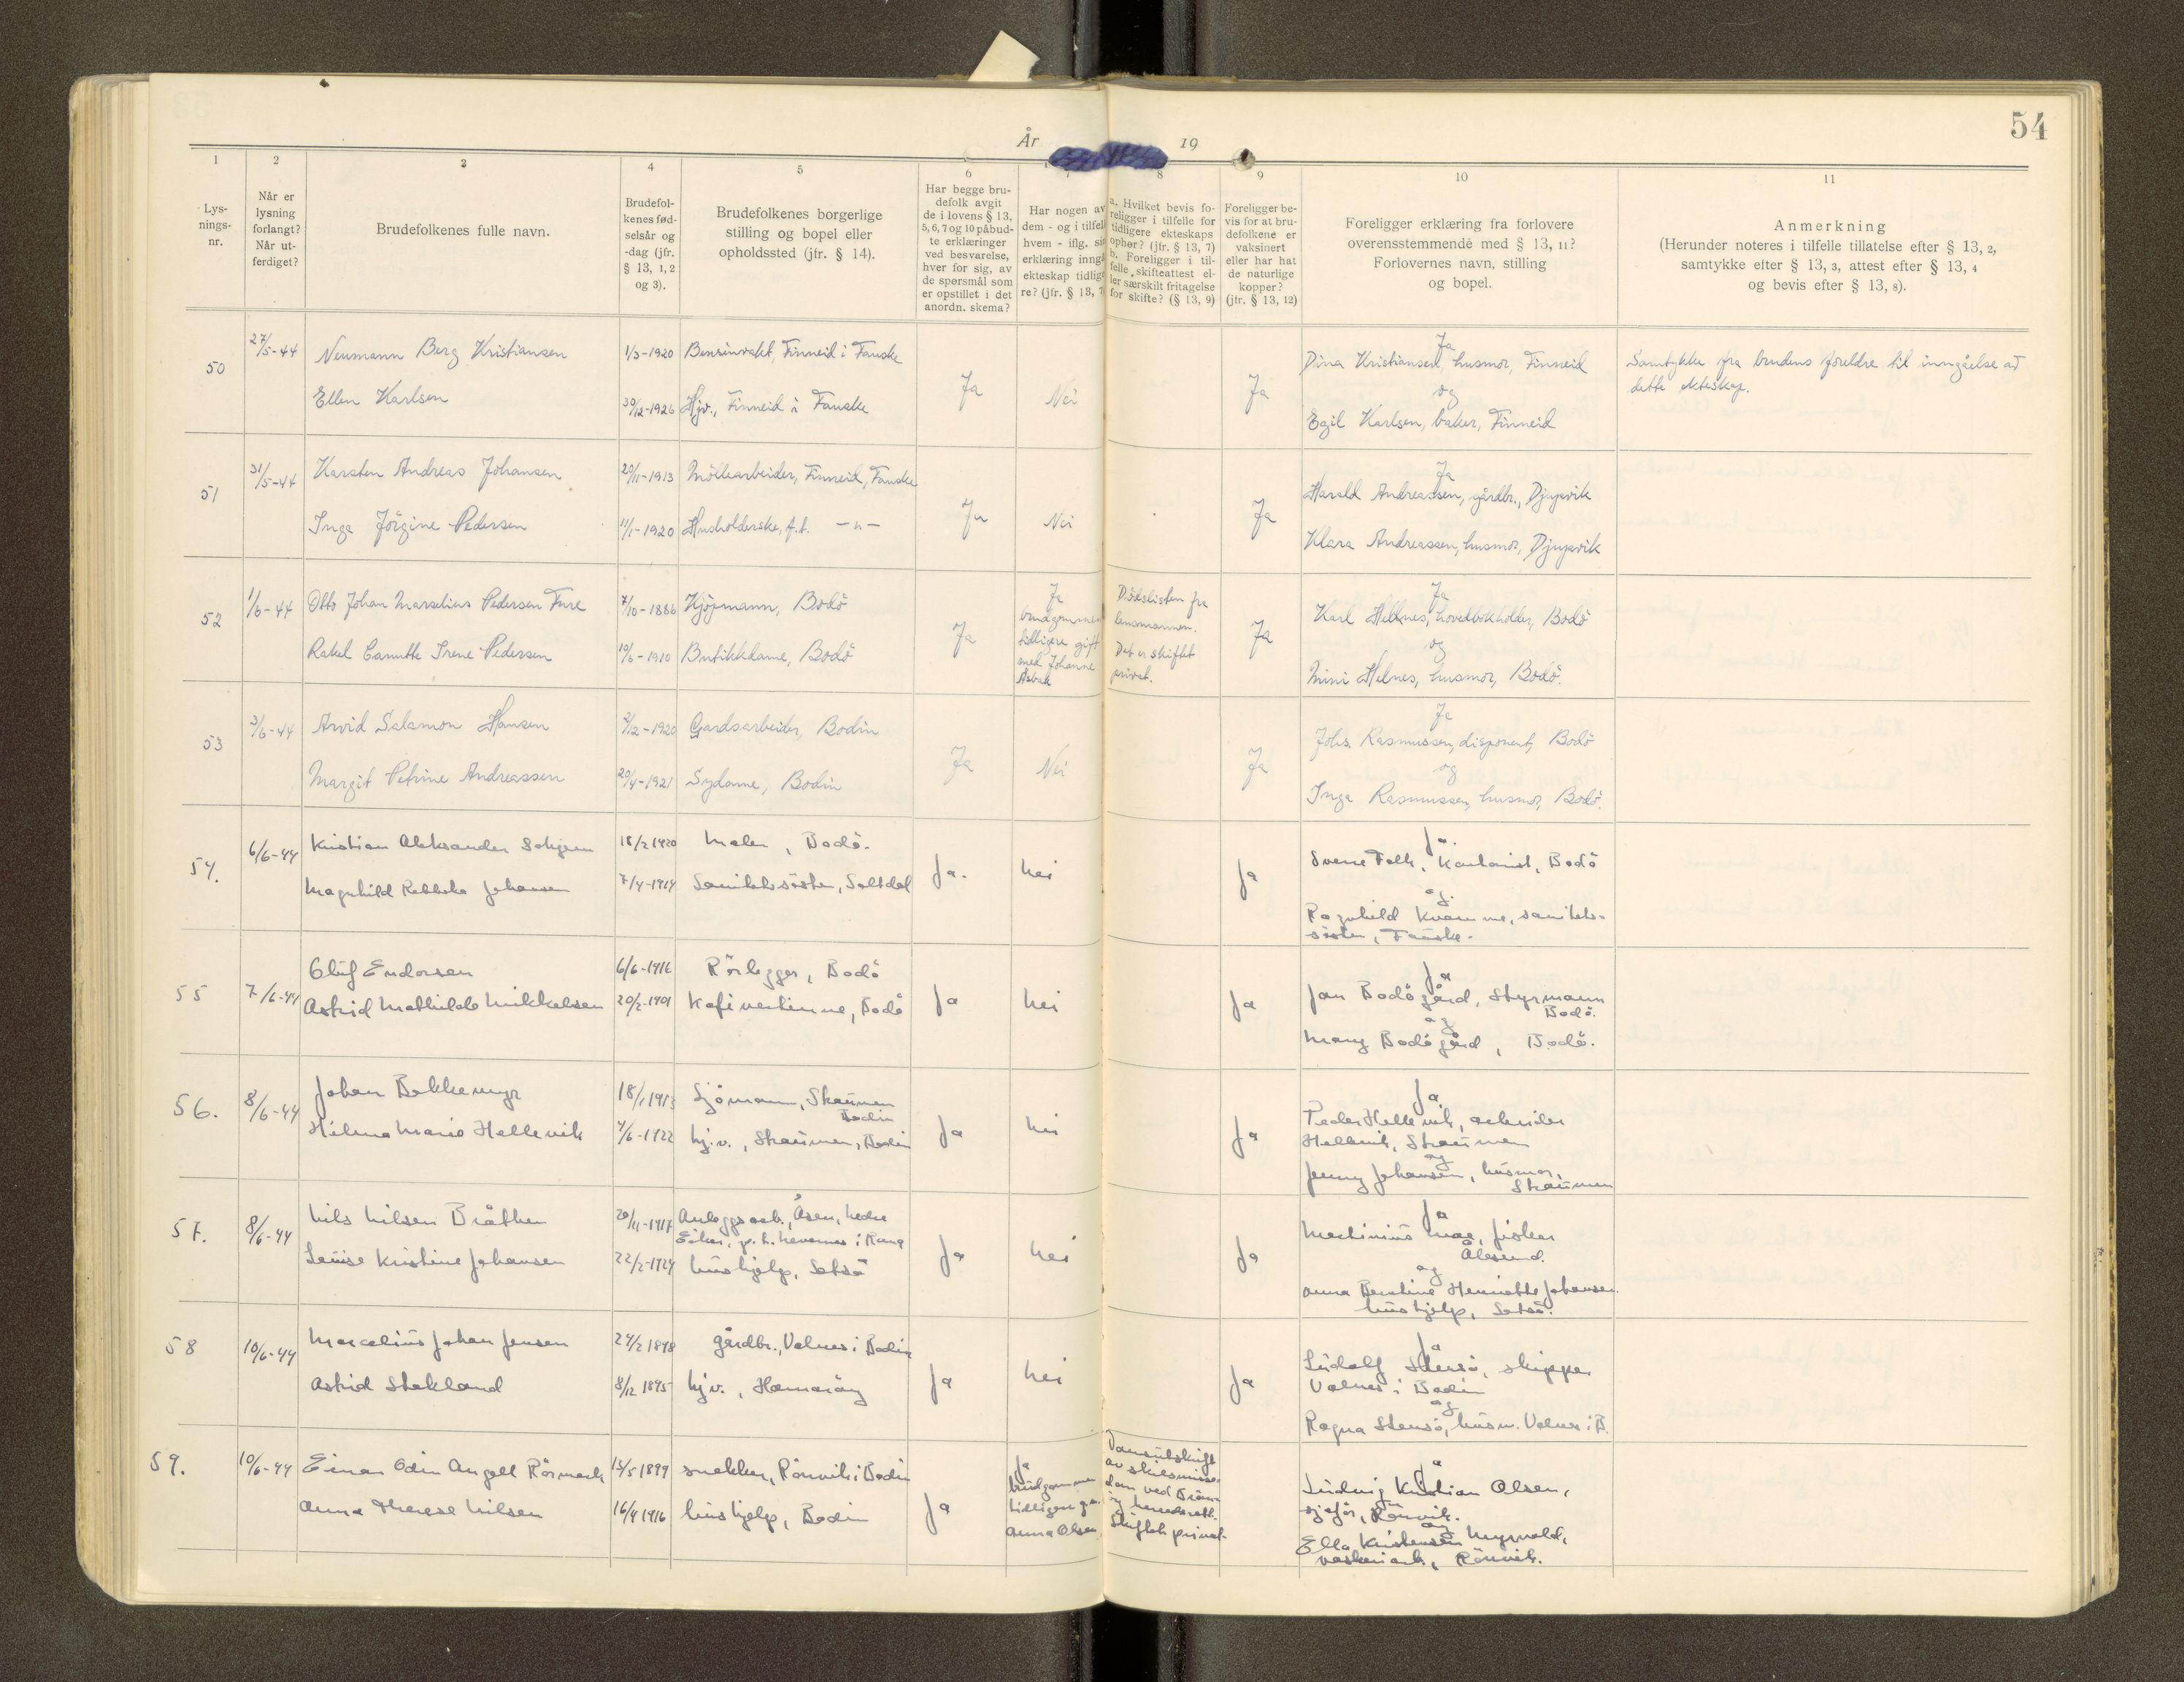 54
År 19
1 2 3 4 5 6 7 8 9 10 11
Lys-
nings-
nr.
Når er
lysning
forlangt?
Når ut-
ferdiget?
Brudefolkenes fulle navn.
Brudefol-
kenes fød-
selsår og
-dag (jfr.
§ 13, 1, 2
og 3).
Brudefolkenes borgerlige
stilling og bopel eller
opholdssted (jfr. § 14).
Har begge bru-
defolk avgit
de i lovens § 13,
5, 6, 7 og 10 påbud-
te erklæringer
ved besvarelse,
hver for sig, av
de spørsmål som
er opstillet i det
anordn. skema?
Har nogen av
dem - og i tilfel
hvem - iflg. sin
erklæring inng
ekteskap tidlig
re? (jfr. § 13, 7
a. Hvilket bevis fo-
religger i tilfelle for
tidligere ekteskaps
ophør? (jfr. § 13, 7)
b. Foreligger i til-
felle skifteattest el-
ler særskilt fritagelse
for skifte? (§ 13, 9)
Foreligger be-
vis for at bru-
defolkene er
vaksinert
eller har hat
de naturlige
kopper?
(jfr. § 13, 12)
Foreligger erklæring fra forlovere
overensstemmende med § 13, 11?
Forlovernes navn, stilling
og bopel.
Anmerkning
(Herunder noteres i tilfelle tillatelse efter § 13, 2,
samtykke efter § 13, 3, attest efter § 13, 4
og bevis efter § 13, 8).
50
27/5-44
Neumann Berg Kristiansen
Ellen Karlsen
1/3-1920
30/12-1926
Bensinvakt, Finneid i Fauske
Hjv., Finneid i Fauske
Ja
Nei
Ja
Ja
Dina Kristiansen, husmor, Finneid
og
Egil Karlsen, baker, Finneid
Samtykke fra brudens foreldre til inngåelse av
dette ekteskap.
51
31/5-44
Karsten Andreas Johansen
Inga Jörgine Pedersen
20/11-1913
11/1-1920
Möllearbeider, Finneid, Fauske
Husholderske, f.t. —"—
Ja
Nei
Ja
Ja
Harald Andreassen, gårdbr., Djupvik
Klara Andreassen, husmor, Djupvik
52
1/6-44
Otto Johan Marselius Pedersen Fure
Rakel Camutte Irene Pedersen
7/10-1886
10/6-1910
Kjöpmann, Bodö
Butikkdame, Bodö
Ja
Ja
brudgommen
tidligere gift
med Johanne
Dödslisten fra
lensmannen.
Det er skiftet
privat.
Ja
Ja
Karl Hellnes, hovedbokholder, Bodö
og
Mini Helnes, husmor, Bodö.
53
3/6-44
Arvid Salamon Hansen
Margit Petrine Andreassen
2/12-1920
20/4-1921
Gardsarbeider, Bodin
Sydame, Bodin
Ja
Nei
Ja
Ja
Johs. Rasmussen, disponent, Bodö
og
Inga Rasmussen, husmor, Bodö.
54.
6/6-44
Kristian Aleksander
Magnhild Rebbeka Johansen
18/2 1920
7/4-1914
Maler, Bodö.
Sanitetssöster, Saltdal
Ja.
Nei
Ja
Ja.
Sverre Falk, Kontorist, Bodö
og.
Ragnhild Kvamme, sanitets-
söster, Fauske.
55
7/6-44
Oluf Endorsen
Astrid Mathilde Mikkelsen
6/6-1916
20/2-1901
Rörlegger, Bodö
Kafevertinne, Bodö
Ja
Nei
Ja
Ja
Jan Bodögård, Styrmann
Bodö.
og
Mary Bodögård, Bodö.
56.
8/6-44
Johan Bakkemyr
Hilma Marie Hellevik
18/1 1913
4/6-1922
Sjömann, Skaumen
Bodin
hj.v., Skaumen, Bodin
Ja
Nei
Ja
Ja
Peder Hellevik, arbeider
Hellevik, Straumen
og
Jenny Johansen, husmor,
Straumen
57.
8/6-44
Nils Nilsen Bråthen
Louise Kristine Johansen
20/11-1917
22/2-1924
Anleggsarb., Åsen, Nedre
Eiker, p.t. Nevernes i Rana
hushjelp, Setså
Ja
Nei
Ja
Ja
Martinius Moe, fisker
Ålesund.
og
Anna Berntine Henriette Johansen
hushjelp, Setså.
58
10/6-44
Marcelius Johan Jensen
Astrid Stokland
24/2 1898
8/12 1895
gårdbr., Valnes i Bodin
hj.v., Hamaröy
Ja
Nei
Ja
Ja
Ludolf Stensö, skipper
Valnes i Bodin
og
Ragna Stensö, husm. Valnes i B.
59.
10/6-44
Einar Odin Angell Rörmark
Anna Therese Nilsen
15/5 1899
16/4 1916
snekker, Rönvik i Bodin
hushjelp, Bodin
Ja
Ja
brudgommen
tidligere g.m.
Anna Olsen
Domsutskrift
av skilsmisse-
dom ved
herredsrett.
Skiftet privat.
Ja
Ludvig Kristian Olsen,
sjåför, Rönvik.
og
Ella Kristensen Myrvold,
vaskeriarb., Rönvik.